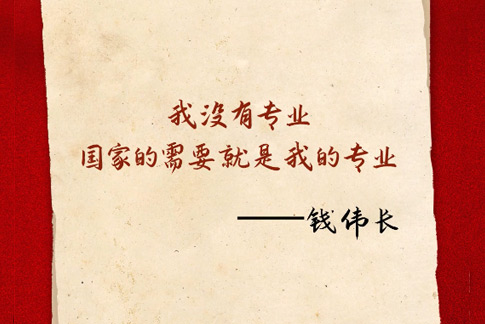 我没有专业
国家的需要就是我的专业
——钱伟长